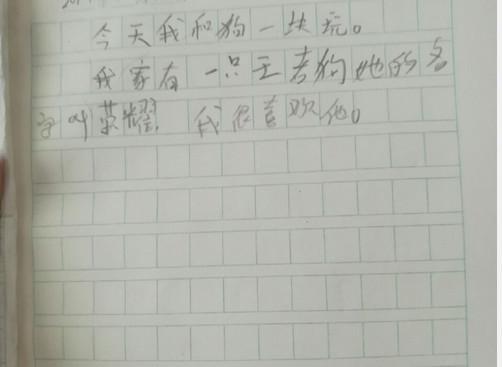 今天我和狗一块玩。
我家有一只王者狗她的名
字叫荣耀 我很喜欢他。